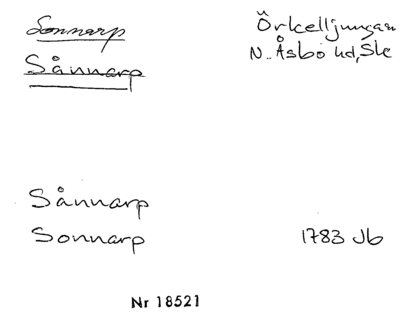 Sonnarp
Örkelljunga
Sånnarp
N. Åsbo hd, Sk
Sånnarp
Sonnarp 1783 Jb
Nr 18521